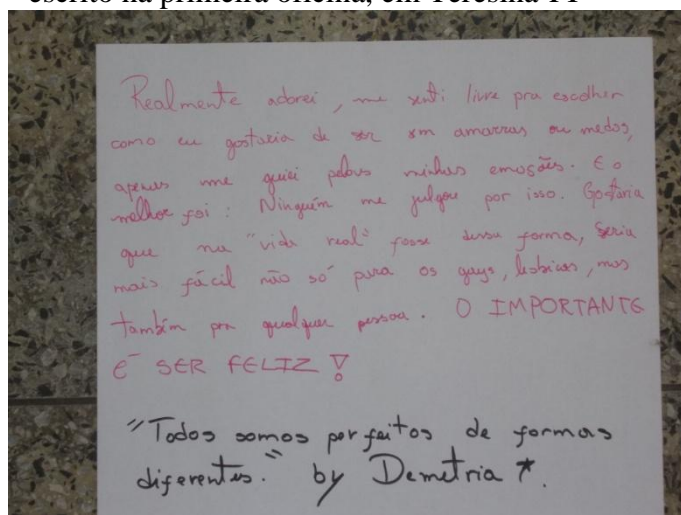 escrito na primeira oficina, em Teresina-PI
Realmente adorei, me senti livre pra escolher
como eu gostaria de ser sem amarras ou medos,
apenas me guiei pelas minhas emoções. E o
melhor foi: Ninguém me julgou por isso. Gostaria
que na "vida real" fosse dessa forma, seria
mais fácil não só para os gays, lésbicas, mas
também por qualquer pessoa. O IMPORTANTE
É SER FELIZ!
"Todos somos perfeitos de formas
diferentes." by Demetria *.